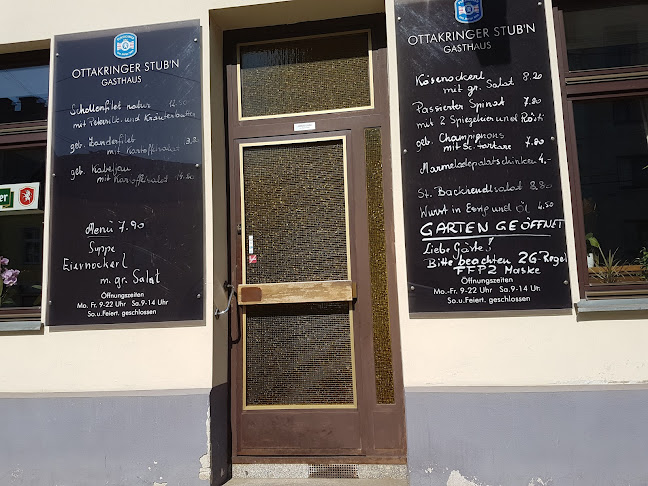 OTTAKRINGER STUB'N
GASTHAUS
Schollenfilet natur 12.50
mit Petersilk. und Kräuterbutter
geb. Zanderfilet
mit Kartoffelsalat
geb. Kabeljau
mit Kartoffelsalat
Menü 7.90
Suppe
Eiernockerl
m. gr. Salat
Öffnungszeiten
Mo.-Fr. 9-22 Uhr Sa.9-14 Uhr.
So.u.Feiert. geschlossen
OTTAKRINGER STUB'N
GASTHAUS
Käsenockerl
mit gr. Salat 8.20
Passierter Spinat 7.90
mit 2 Spiegeleier und Rösti
geb. Champignons
mit Sc. tartare 7.80
Marmeladepalatschinken 4,-
St. Backhendlsalat 8,80
Wurst in Essig und Öl 4.50
GARTEN GEÖFFNET
Liebe Gäste!
Bitte beachten 2G-Regel
FFP2 Maske
Öffnungszeiten
Mo.-Fr. 9-22 Uhr Sa.9-14 Uhr.
So.u.Feiert. geschlossen